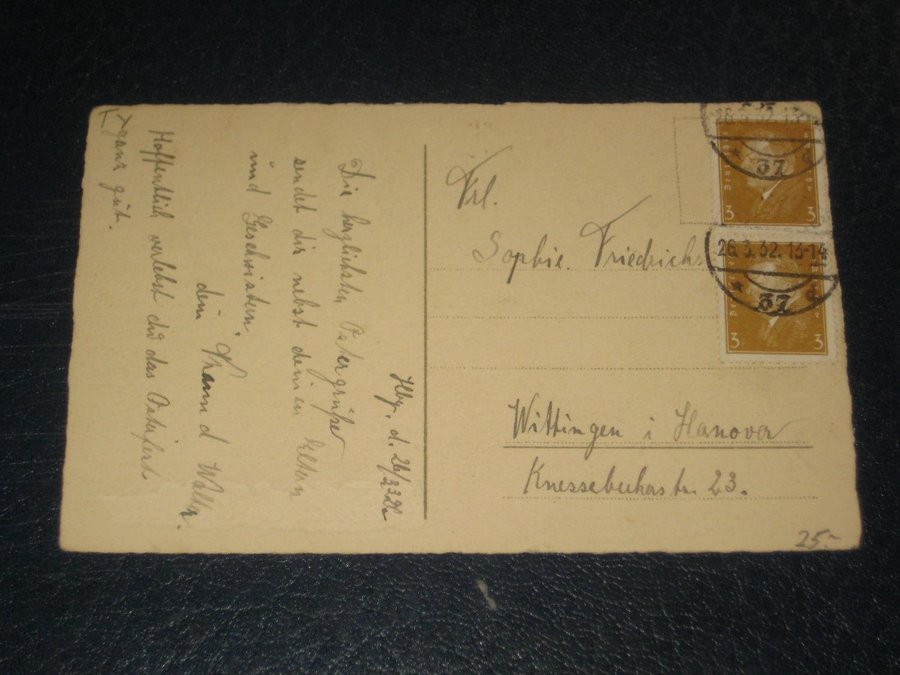 Hbg. d. 26/3.32
Die herzlichsten Ostergrüße
sendet dir nebst deinen Eltern
und Geschwistern.
dein Freund Walter.
Hoffentlich verlebst du das Osterfest
ganz gut.
Frl.
Sophie. Friedrichs
Wittingen i Hanover
Knessebeckerstr. 23.
25.-
37
3
3
26.3.32.13-14
37
3
3